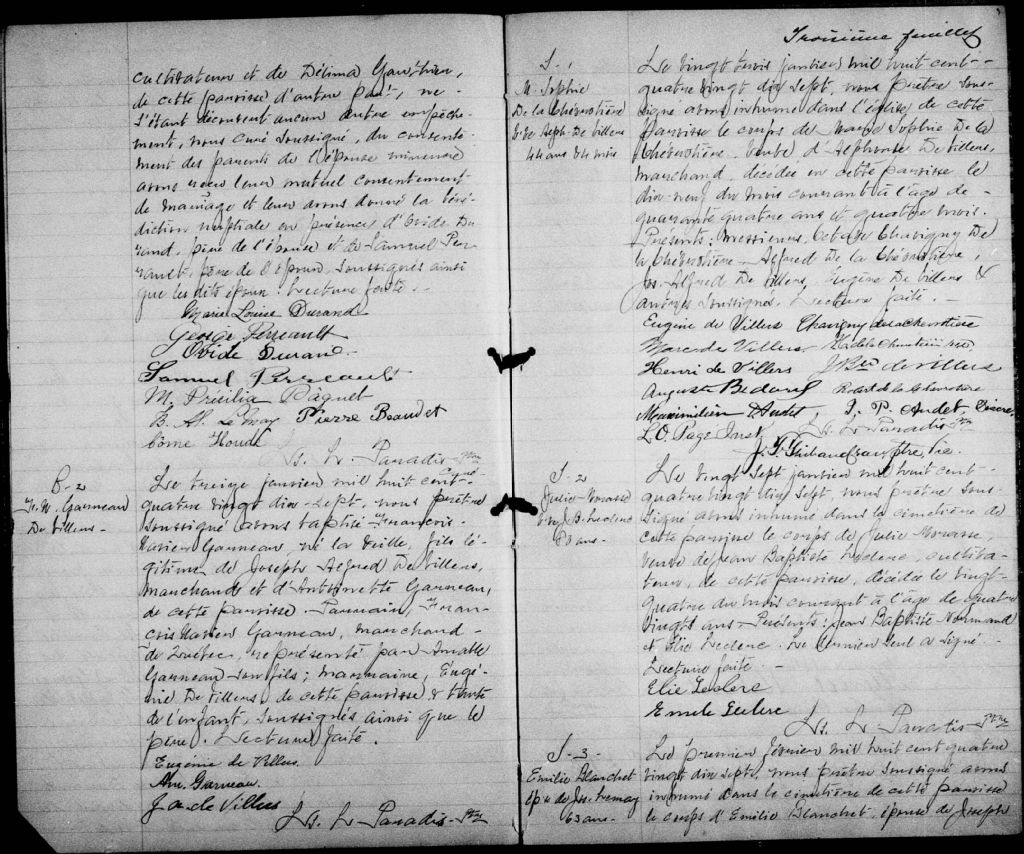 cultivateur et de Délima Gauthier,
de cette paroisse d'autre part, ne
s'étant découvert aucun autre empêche-
ment, nous curé soussigné, du consente-
ment des parents de l'épouse mineure
avons reçu leur mutuel consentement
de mariage et leur avons donné la béné-
diction nuptiale en présence d'Ovide Du-
rand, père de l'épouse et de Samuel Per-
rault, père de l'époux, soussignés ainsi
que les dits époux. Lecture faite. -
Marie Louise Durand
George Perreault
Ovide Durand
Samuel Perreault
M. Précilia Paquet
B. H. Lemay Pierre Beaudet
Côme Houde
Ls. L. Paradis Ptre
Curé
B-2
F. X. Garneau
De Villers
Le treize janvier mil huit cent-
quatre vingt dix-sept, nous prêtre
soussigné avons baptisé François-
Xavier Garneau, né la veille, fils lé-
gitime de Joseph Alfred De Villers,
marchand et d'Antoinette Garneau,
de cette paroisse. Parrain, Fran-
cois Xavier Garneau, marchand -
de Québec, représenté par Amable
Garneau son fils; marraine, Eugé-
nie De Villers de cette paroisse & tante
de l'enfant, soussignés ainsi que le
père. Lecture faite.
Eugénie de Villers
Am. Garneau
J. A. de Villers
Ls. L. Paradis Ptre
Troisième feuillet
S-1
M. Sophie
De la Chévrotière
Vve Alph. De Villers
44 ans & 4 mois
Le vingt trois janvier mil huit cent-
quatre vingt dix sept, nous prêtre sous-
signé avons inhumé dans l'église de cette
paroisse le corps de Marie Sophie De la
Chévrotière, veuve d'Alphonse De Villers,
marchand, décédée en cette paroisse le
dix-neuf du mois courant à l'âge de -
quarante quatre ans et quatre mois.
Présents: Messieurs, Octave Chavigny De
la Chévrotière, Alfred De la Chévrotière,
Jos. Alfred De Villers, Eugène De Villers &
autres soussignés. Lecture faite. -
Eugène de Villers Chavigny de la chevrotière
Marc de Villers
Henri de Villers de villers
Auguste Bedard
Maximilien Audet, J. P. Audet,
L. O. Pagé Ls. L. Paradis Ptre
J. Thibaudeau ptre, Vic.
S-2
Julie Morasse
Vve J. B. Leclerc
80 ans -
Le vingt sept janvier mil huit cent-
quatre vingt dix sept, nous prêtre sous-
signé avons inhumé dans le cimetière de
cette paroisse le corps de Julie Morasse,
veuve de Jean Baptiste Leclerc, cultiva-
teur, de cette paroisse, décédée le vingt-
quatre du mois courant à l'âge de quatre
vingts ans - Présents: Jean Baptiste Normand
et Elie Leclerc. Le dernier seul a signé
Lecture faite -
Elie Leclerc
Emile Leclerc
Ls. L. Paradis Ptre
S-3-
Emilie Blanchet
épse de Jos. Lemay
63 ans -
Le premier février mil huit cent quatre
vingt dix sept, nous prêtre soussigné avons
inhumé dans le cimetière de cette paroisse
le corps d'Emilie Blanchet, épouse de Joseph